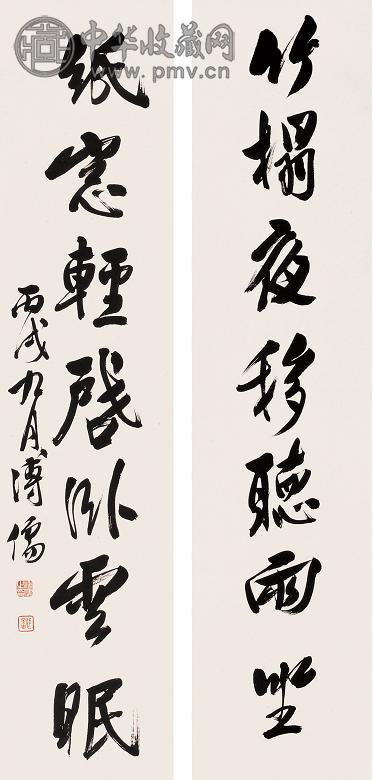 中华收藏网
www.pmv.cn
竹榻夜移聽雨坐
紙窓輕啓卧雲眠
丙戌九月溥儒